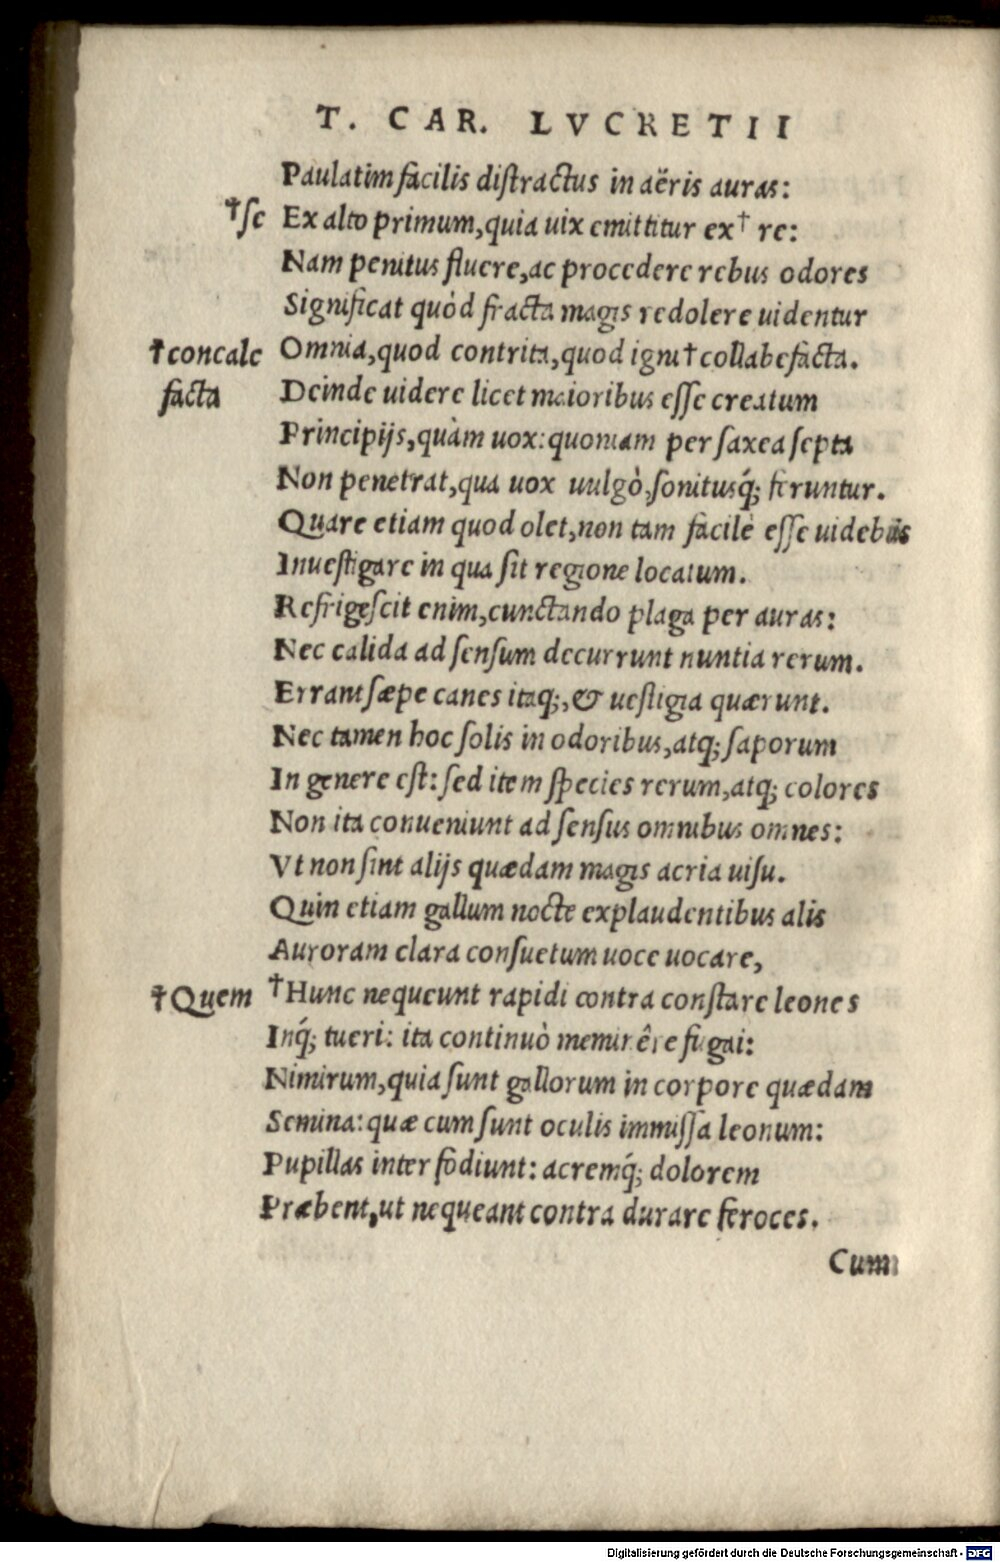 T. CAR. LVCRETII
Paulatim facilis diſtractus in aëris auras:
†ſe Ex alto primum, quia uix emittitur ex† re:
Nam penitus fluere, ac procedere rebus odores
Significat quòd fracta magis redolere uidentur
†concale Omnia, quod contrita, quod igni† collabefacta.
facta Deinde uidere licet maioribus eſſe creatum
Principijs, quàm uox: quoniam per ſaxea ſepta
Non penetrat, qua uox uulgò, ſonitusq́; feruntur.
Quare etiam quod olet, non tam facilè eſſe uidebis
Inueſtigare in qua ſit regione locatum.
Refrigeſcit enim, cunctando plaga per auras:
Nec calida ad ſenſum decurrunt nuntia rerum.
Errant ſæpe canes itaq;, & ueſtigia quærunt.
Nec tamen hoc ſolis in odoribus, atq; ſaporum
In genere eſt: ſed item ſpecies rerum, atq; colores
Non ita conueniunt ad ſenſus omnibus omnes:
Vt non ſint alijs quædam magis acria uiſu.
Quin etiam gallum nocte explaudentibus alis
Auroram clara conſuetum uoce uocare,
†Quem †Hunc nequeunt rapidi contra conſtare leones
Inq́; tueri: ita continuò meminêre fugai:
Nimirum, quia ſunt gallorum in corpore quædam
Semina: quæ cum ſunt oculis immiſſa leonum:
Pupillas inter fodiunt: acremq́; dolorem
Præbent, ut nequeant contra durare feroces.
Cum
Digitalisierung gefördert durch die Deutsche Forschungsgemeinschaft - DFG